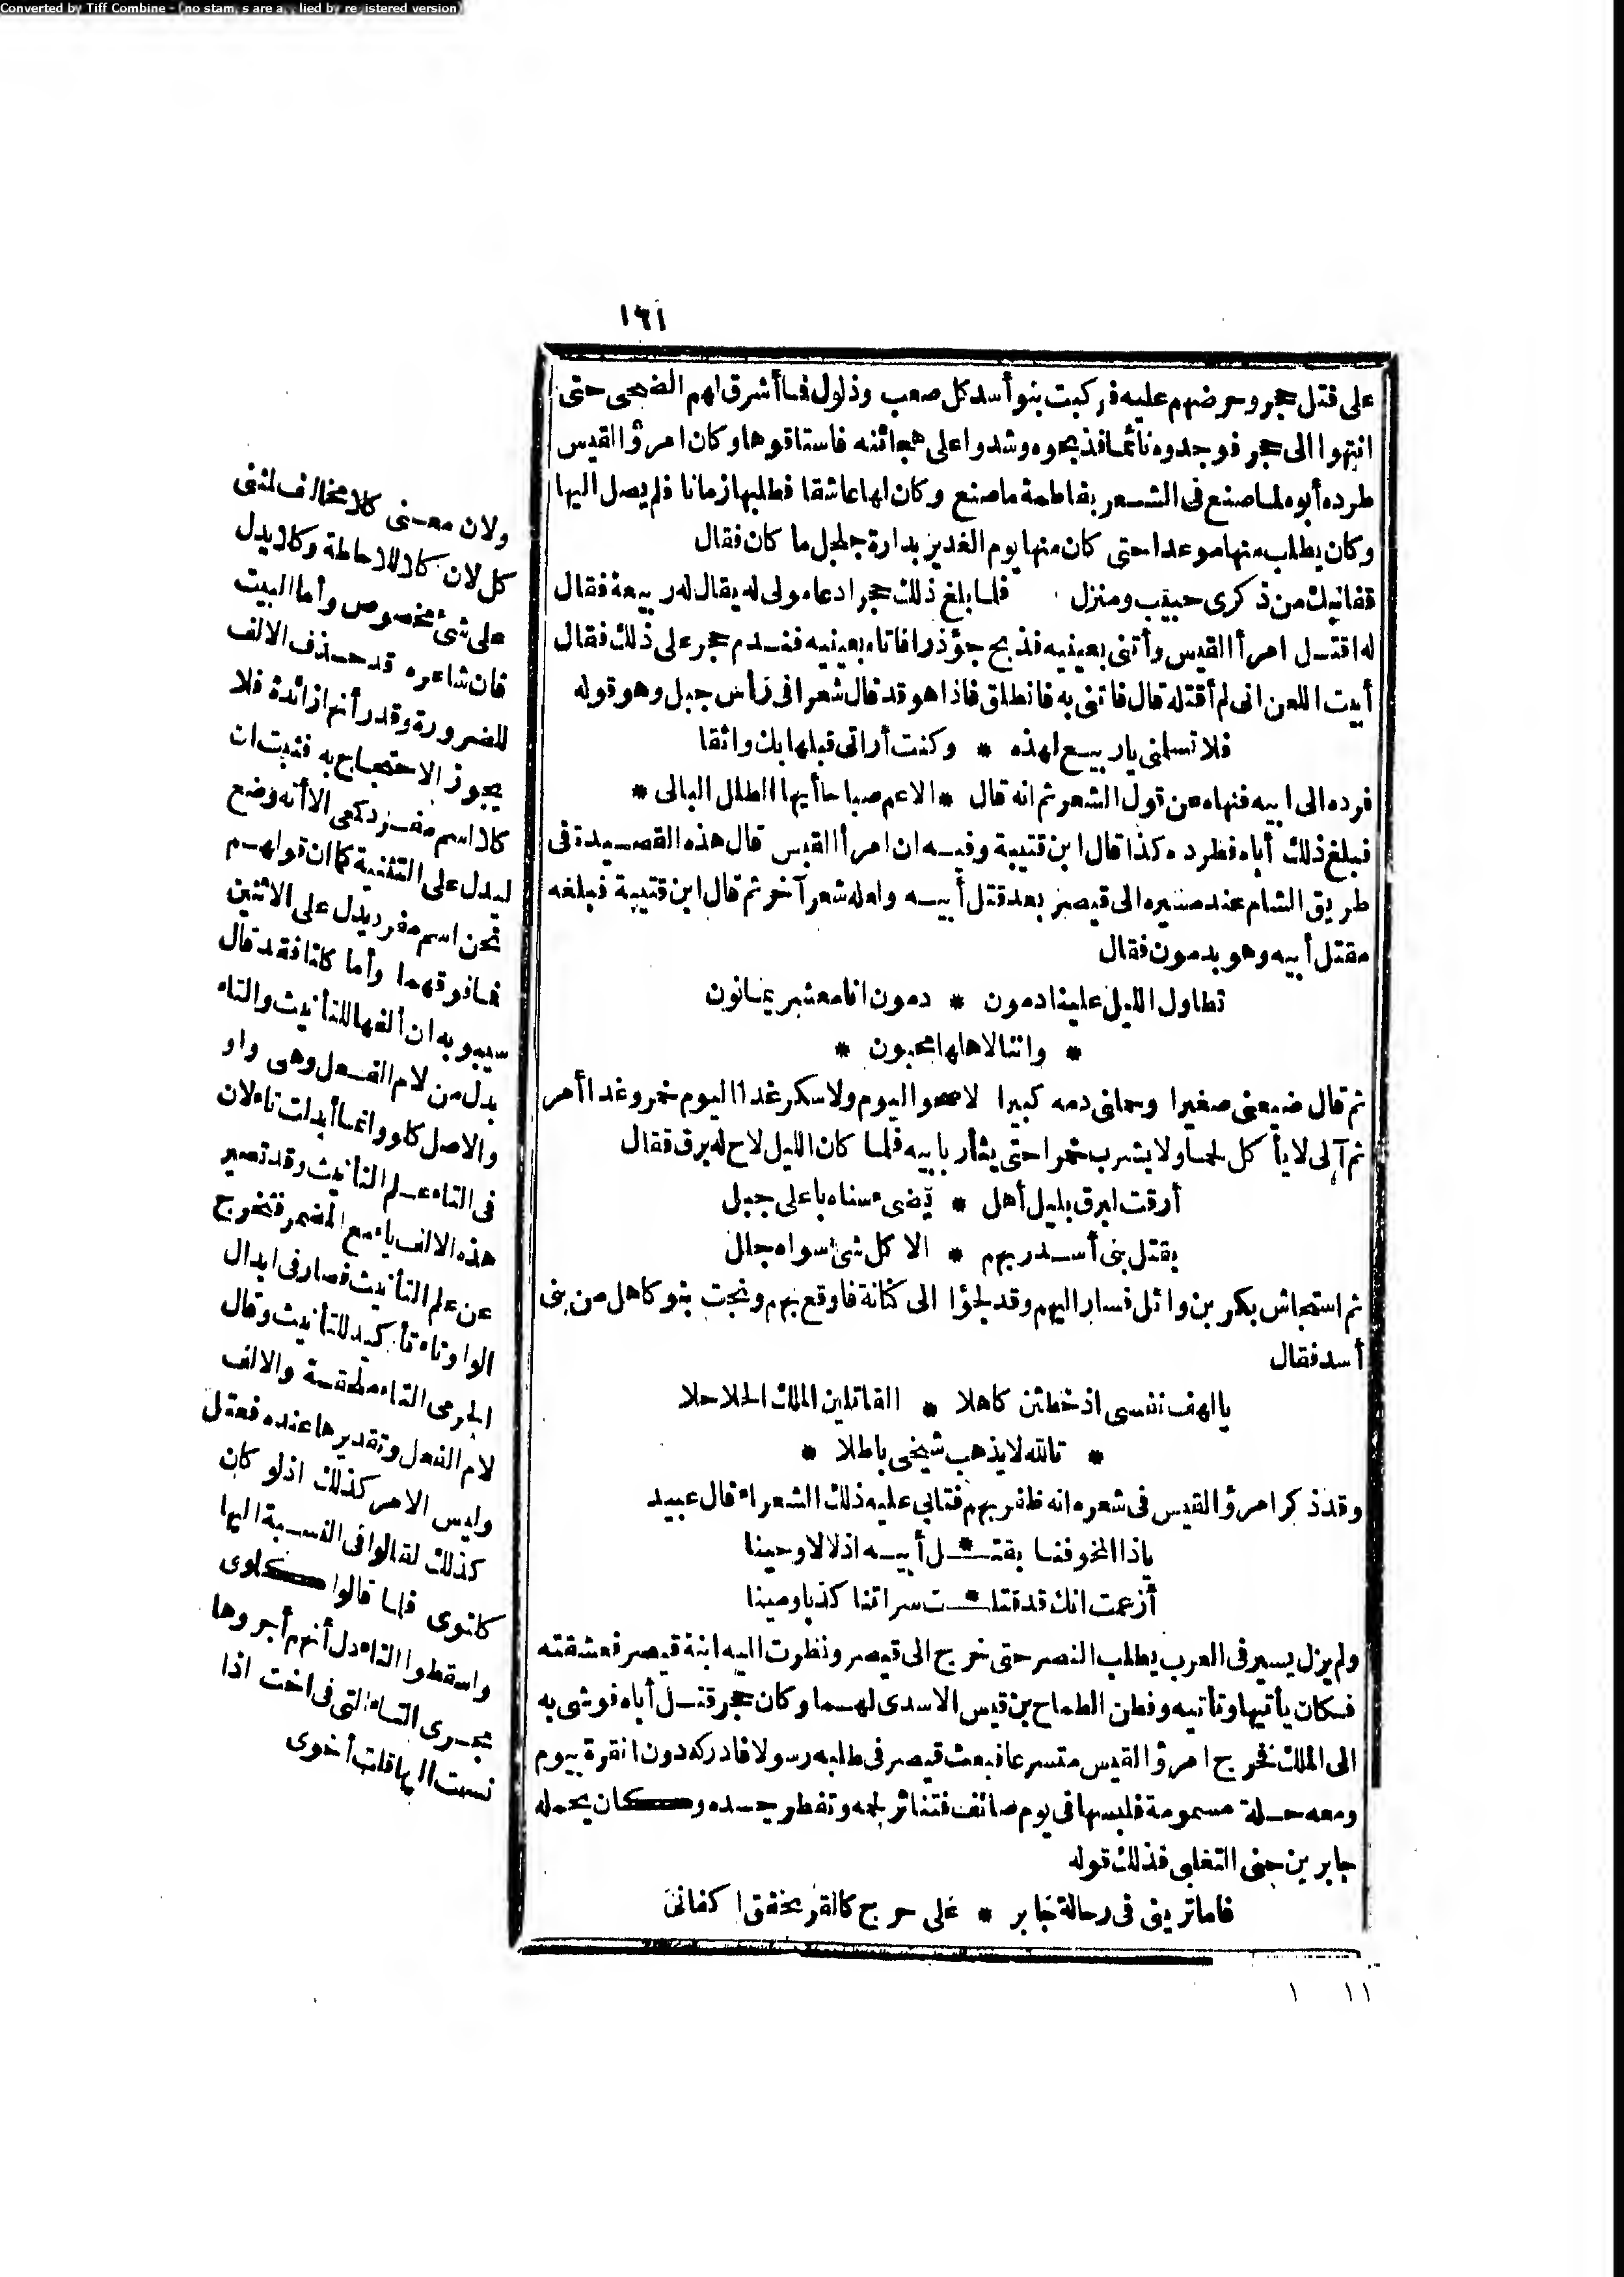 Converted by Tiff Combine - (no stamps are applied by registered version)
١٦١
على قتل حجر وحرضهم عليه فركبت بنو أسد كل صعب وذلول فما أشرق لهم الضحى حتى
انتهوا الى حجر فوجدوه نائما فذبحوه وشدوا على هجائنه فاستاقوها وكان امرؤ القيس
طرده أبوه لما صنع فى الشعر بفاطمة ما صنع وكان لها عاشقا فطلبها زمانا فلم يصل اليها
وكان يطلب منها موعدا حتى كان منها يوم الغدير بدارة جلجل ما كان فقال
قفا نبك من ذكرى حبيب ومنزل فلما بلغ ذلك حجرا دعا مولى له يقال له ربيعة فقال
له اقتل امرأ القيس وأتنى بعينيه فذبح جؤذرا فاتاه بعينيه فندم حجر على ذلك فقال
أبيت اللعن انى لم أقتله قال فاتنى به فانطلق فاذا هو قد قال شعرا فى رأس جبل وهو قوله
فلا تسلمنى يا ربيع لهذه * وكنت أرانى قبلها بك واثقا
فرده الى ابيه فنهاه عن قول الشعر ثم انه قال * الا عم صباحا أيها الطلل البالى *
فبلغ ذلك أباه فطرده كذا قال ابن قتيبة وفيه ان امرأ القيس قال هذه القصيدة فى
طريق الشام عند مسيره الى قيصر بعد قتل أبيه ولعله شعر آخر ثم قال ابن قتيبة فبلغه
مقتل أبيه وهو بدمون فقال
تطاول الليل علينا دمون * دمون انا معشر يمانون
* واننا لاهلها محبون *
ثم قال ضيعنى صغيرا وحملنى دمه كبيرا لا صحو اليوم ولا سكر غدا اليوم خمر وغدا أمر
ثم آلى لا يأكل لحما ولا يشرب خمرا حتى يثأر بابيه فلما كان الليل لاح له برق فقال
أرقت لبرق بليل أهل * يضىء سناه باعلى جبل
بقتل بنى أسد ربهم * الا كل شئ سواه جلل
ثم استجاش بكر بن وائل فسار اليهم وقد لجؤا الى كنانة فاوقع بهم ونجت بنو كاهل من بنى
أسد فقال
يا لهف نفسى اذ خطئن كاهلا * القاتلين الملك الحلاحلا
* تالله لا يذهب شيخى باطلا *
وقد ذكر امرؤ القيس فى شعره انه ظفر بهم فتابى عليه ذلك الشعراء قال عبيد
ياذا المخوفنا بقتـ * ـل أبيه اذلالا وحينا
أزعمت انك قد قتلـ * ـت سراتنا كذبا ومينا
ولم يزل يسير فى العرب يطلب النصر حتى خرج الى قيصر ونظرت اليه ابنة قيصر فعشقته
فكان يأتيها وتأتيه وفطن الطماح بن قيس الاسدى لهما وكان حجر قتل أباه فوشى به
الى الملك فخرج امرؤ القيس متسرعا فبعث قيصر فى طلبه رسولا فادركه دون انقرة بيوم
ومعه حلة مسمومة فلبسها فى يوم صائف فتناثر لحمه وتفطر جسده وكان يحمله
جابر بن حنى التغلبى فذلك قوله
فاما ترينى فى رحالة جابر * على حرج كالقر تخفق اكفانى
١١ ١
ولان معنى كلا مخالف لمعنى
كل لان كلا للاحاطة وكلا يدل
على شئ مخصوص وأما البيت
فان شاعره قد حذف الالف
للضرورة وقدر أنها زائدة فلا
يجوز الاحتجاج به فثبت ان
كلا اسم مفرد كمعى الا أنه وضع
ليدل على التثنية كما ان قولهم
نحن اسم مفرد يدل على الاثنين
فما فوقهما وأما كلتا فقد قال
سيبويه ان ألفها للتأنيث والتاء
بدل من لام الفعل وهى واو
والاصل كلوا وانما أبدلت تاء لان
فى التاء علم التأنيث وقد تصير
هذه الالف ياء مع المضمر فتخرج
عن علم التأنيث فصار فى ابدال
الواو تاء تأكيد للتأنيث وقال
الجرمى التاء ملحقة والالف
لام الفعل وتقديرها عنده فعتل
وليس الامر كذلك اذ لو كان
كذلك لقالوا فى النسبة اليها
كلتوى فلما قالوا كلوى
واسقطوا التاء دل أنهم أجروها
مجرى التاء التى فى اخت اذا
نسبت اليها قلت أخوى